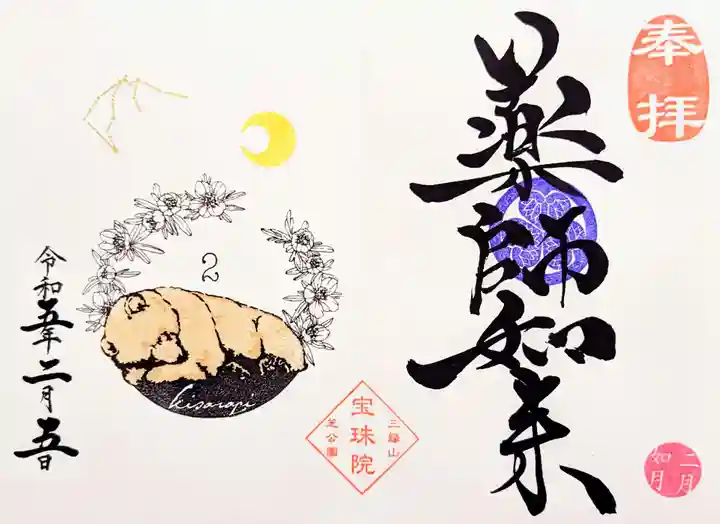 奉拝
薬師如来
二月
如月
2
kisaragi
三縁山
宝珠院
芝公園
令和五年二月五日